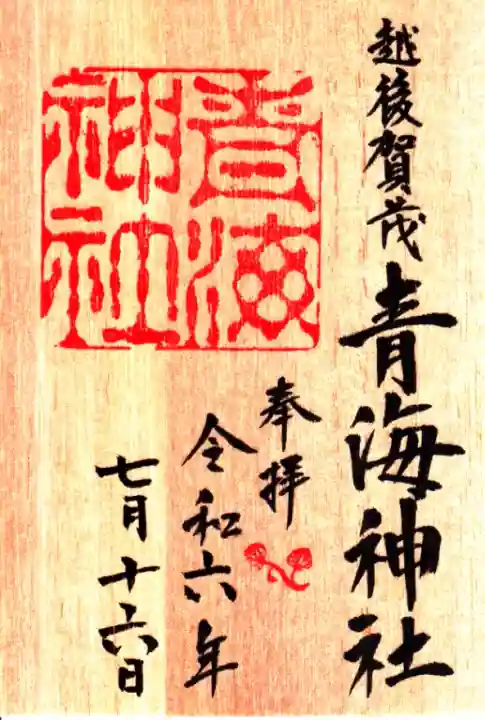 越後賀茂青海神社
奉拝
令和六年
七月十六日
青海
神社